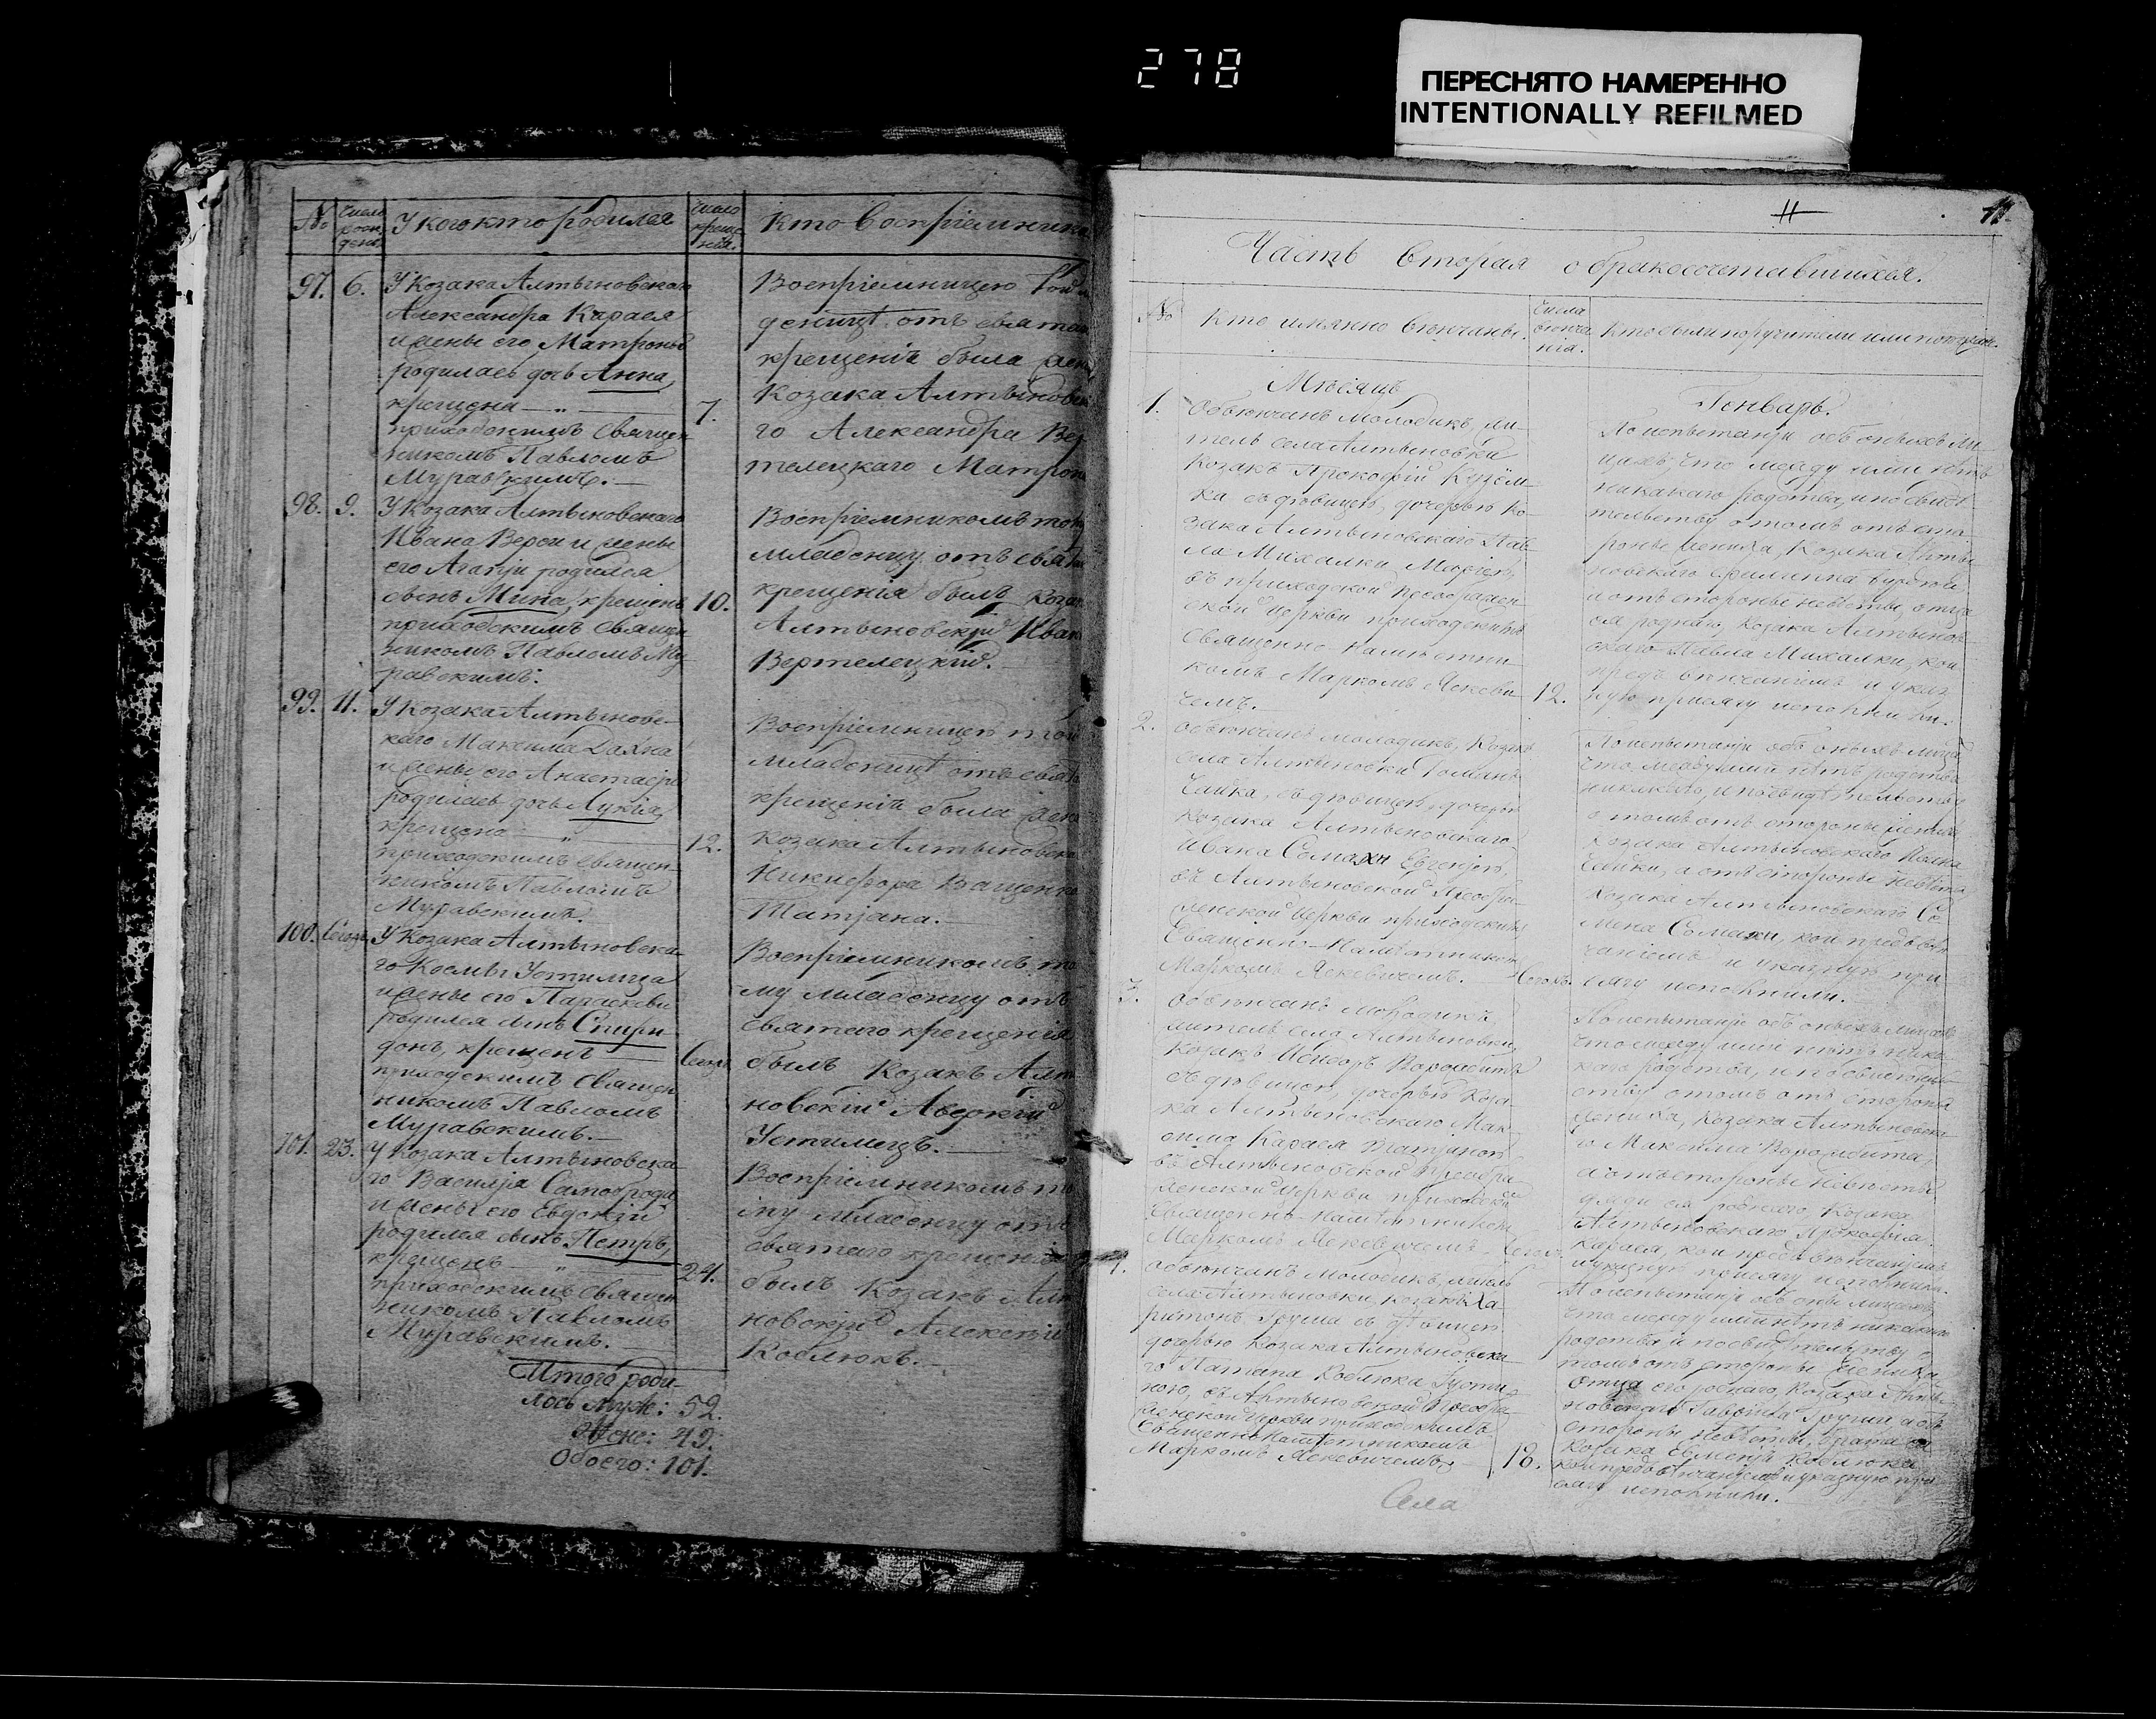 278
ПЕРЕСНЯТО НАМЕРЕННО
INTENTIONALLY REFILMED
№
Число рож. ден.
У кого кто родился
Число креще-нія.
Кто воспріемники
97. 6. У Козака Алтыновскаго
Александра Карася
и жены его Матроны
родилась дочь Анна,
крещена — „ — 7.
приходскимъ Священ-
никомъ Павломъ
Муравскимъ. —
Воспріемницею той м
деницѣ отъ святаг
крещенія была жен
Козака Алтыновск
го Александра Вер
телецкаго Матрон
98. 9. У Козака Алтыновскаго
Ивана и жены
его Агаѳіи родился
сынъ Мина, крещенъ 10.
приходскимъ Священ
никомъ Павломъ Му-
равскимъ.
Воспріемникомъ том
младенцу отъ свят
крещенія былъ Коза
Алтыновскій Иван
Вертелецкій. —
99. 11. У Козака Алтыновс-
каго Максима Дахна
и жены его Анастасіи
родилась дочь Лукія,
крещена — „ — 12.
приходскимъ Священ-
никомъ Павломъ
Муравскимъ.
Воспріемницею той
младеницѣ отъ свят
крещенія была жен
Козака Алтыновска
Никифора Ващенко
Татіана. —
100. Сегожъ У Козака Алтыновска-
го Космы Устимца
и жены его Параскевы
родился сынъ Спири-
донъ, крещенъ — Сегожъ
приходскимъ Священ
никомъ Павломъ
Муравскимъ. —
Воспріемникомъ то
му младенцу отъ
святаго крещенія
былъ Козакъ Алт
новскій Авдокій
Устимецъ. —
101. 23. У Козака Алтыновска
го Василія Самоброда
и жены его Евдокіи
родился сынъ Петръ,
крещенъ — „ — 24.
приходскимъ Священ
никомъ Павломъ
Муравскимъ. —
Воспріемникомъ то
му младенцу отъ
святаго крещенія
былъ Козакъ Алт
новскій Алексѣй
Коблюкъ. —
Итого роди-
лось муж: 52.
Жен: 49.
Обоего: 101.
11 11.
Часть вторая о бракосочетавшихся.
№
Кто имянно вѣнчаны.
Числа вѣнча-нія.
Кто были поручители или
Мѣсяцъ Генварь.
1. Обвѣнчанъ молодикъ, жи-
тель села Алтыновки
Козакъ Прокофій Кузём-
ка съ дѣвицею, дочерью Ко-
зака Алтыновскаго Пав-
ла Михалки Маріею,
въ приходской Преображен-
ской Церкви приходскимъ
Священно-Намѣстни-
комъ Маркомъ Яскеви-
чемъ. — 12.
По испытаніи объ оныхъ ли-
цахъ, что между ними нѣтъ
никакаго родства, и по свидѣ-
тельству о томъ отъ сто-
роны жениха, Козака Алты-
новскаго Филиппа
а отъ стороны невѣсты, отца
ея роднаго, Козака Алтынов-
скаго Павла Михалки, кои
предъ вѣнчаніемъ и указ-
ную присягу исполнили.
2. Обвѣнчанъ молодикъ, Козакъ
села Алтыновки Романъ
Чайка, съ дѣвицею, дочерью
Козака Алтыновскаго
Ивана Сомахи Евгеніею,
въ Алтыновской Преобра-
женской Церкви приходскимъ
Священно-Намѣстникомъ
Маркомъ Яскевичемъ. — Сегожъ.
По испытаніи объ оныхъ лицахъ
что между ними нѣтъ родства
никакаго, и по свидѣтельству
о томъ отъ стороны жениха
Козака Алтыновскаго Ивана
Чайки, а отъ стороны невѣсты
Козака Алтыновскаго Се-
мена Сомахи, кои предъ вѣн-
чаніемъ и указную при-
сягу исполнили. —
3. Обвѣнчанъ молодикъ
житель села Алтыновки
Козакъ Исидоръ
съ дѣвицею, дочерью Коза-
ка Алтыновскаго Мак-
сима Карася Татіаною
въ Алтыновской Преобра-
женской Церкви приходскимъ
Священно-Намѣстникомъ
Маркомъ Яскевичемъ Сегожъ.
По испытаніи объ оныхъ лицахъ
что между ними нѣтъ ника-
каго родства, и по свидѣтель-
ству о томъ отъ стороны
жениха, Козака Алтыновска-
го Максима
а отъ стороны невѣсты
дяди ея роднаго, Козака
Алтыновскаго Прокофія
Карася, кои предъ вѣнчаніемъ
и указную присягу исполнили.
4. Обвѣнчанъ молодикъ, житель
села Алтыновки, Козакъ Ха-
ритонъ Груша съ дѣвицею
дочерью Козака Алтыновска-
го Патапа Коблюка Густи-
ною, въ Алтыновской Преобра-
женской Церкви приходскимъ
Священно-Намѣстникомъ
Маркомъ Яскевичемъ. — 18.
По испытаніи объ оныхъ лицахъ
что между ними нѣтъ никакаго
родства и по свидѣтельству о
томъ отъ стороны жениха,
отца его роднаго, Козака Алты-
новскаго Груши а отъ
стороны невѣсты, брата ея
Козака Евменія Коблюка
кои предъ вѣнчаніемъ и указную при-
сягу исполнили.
Села